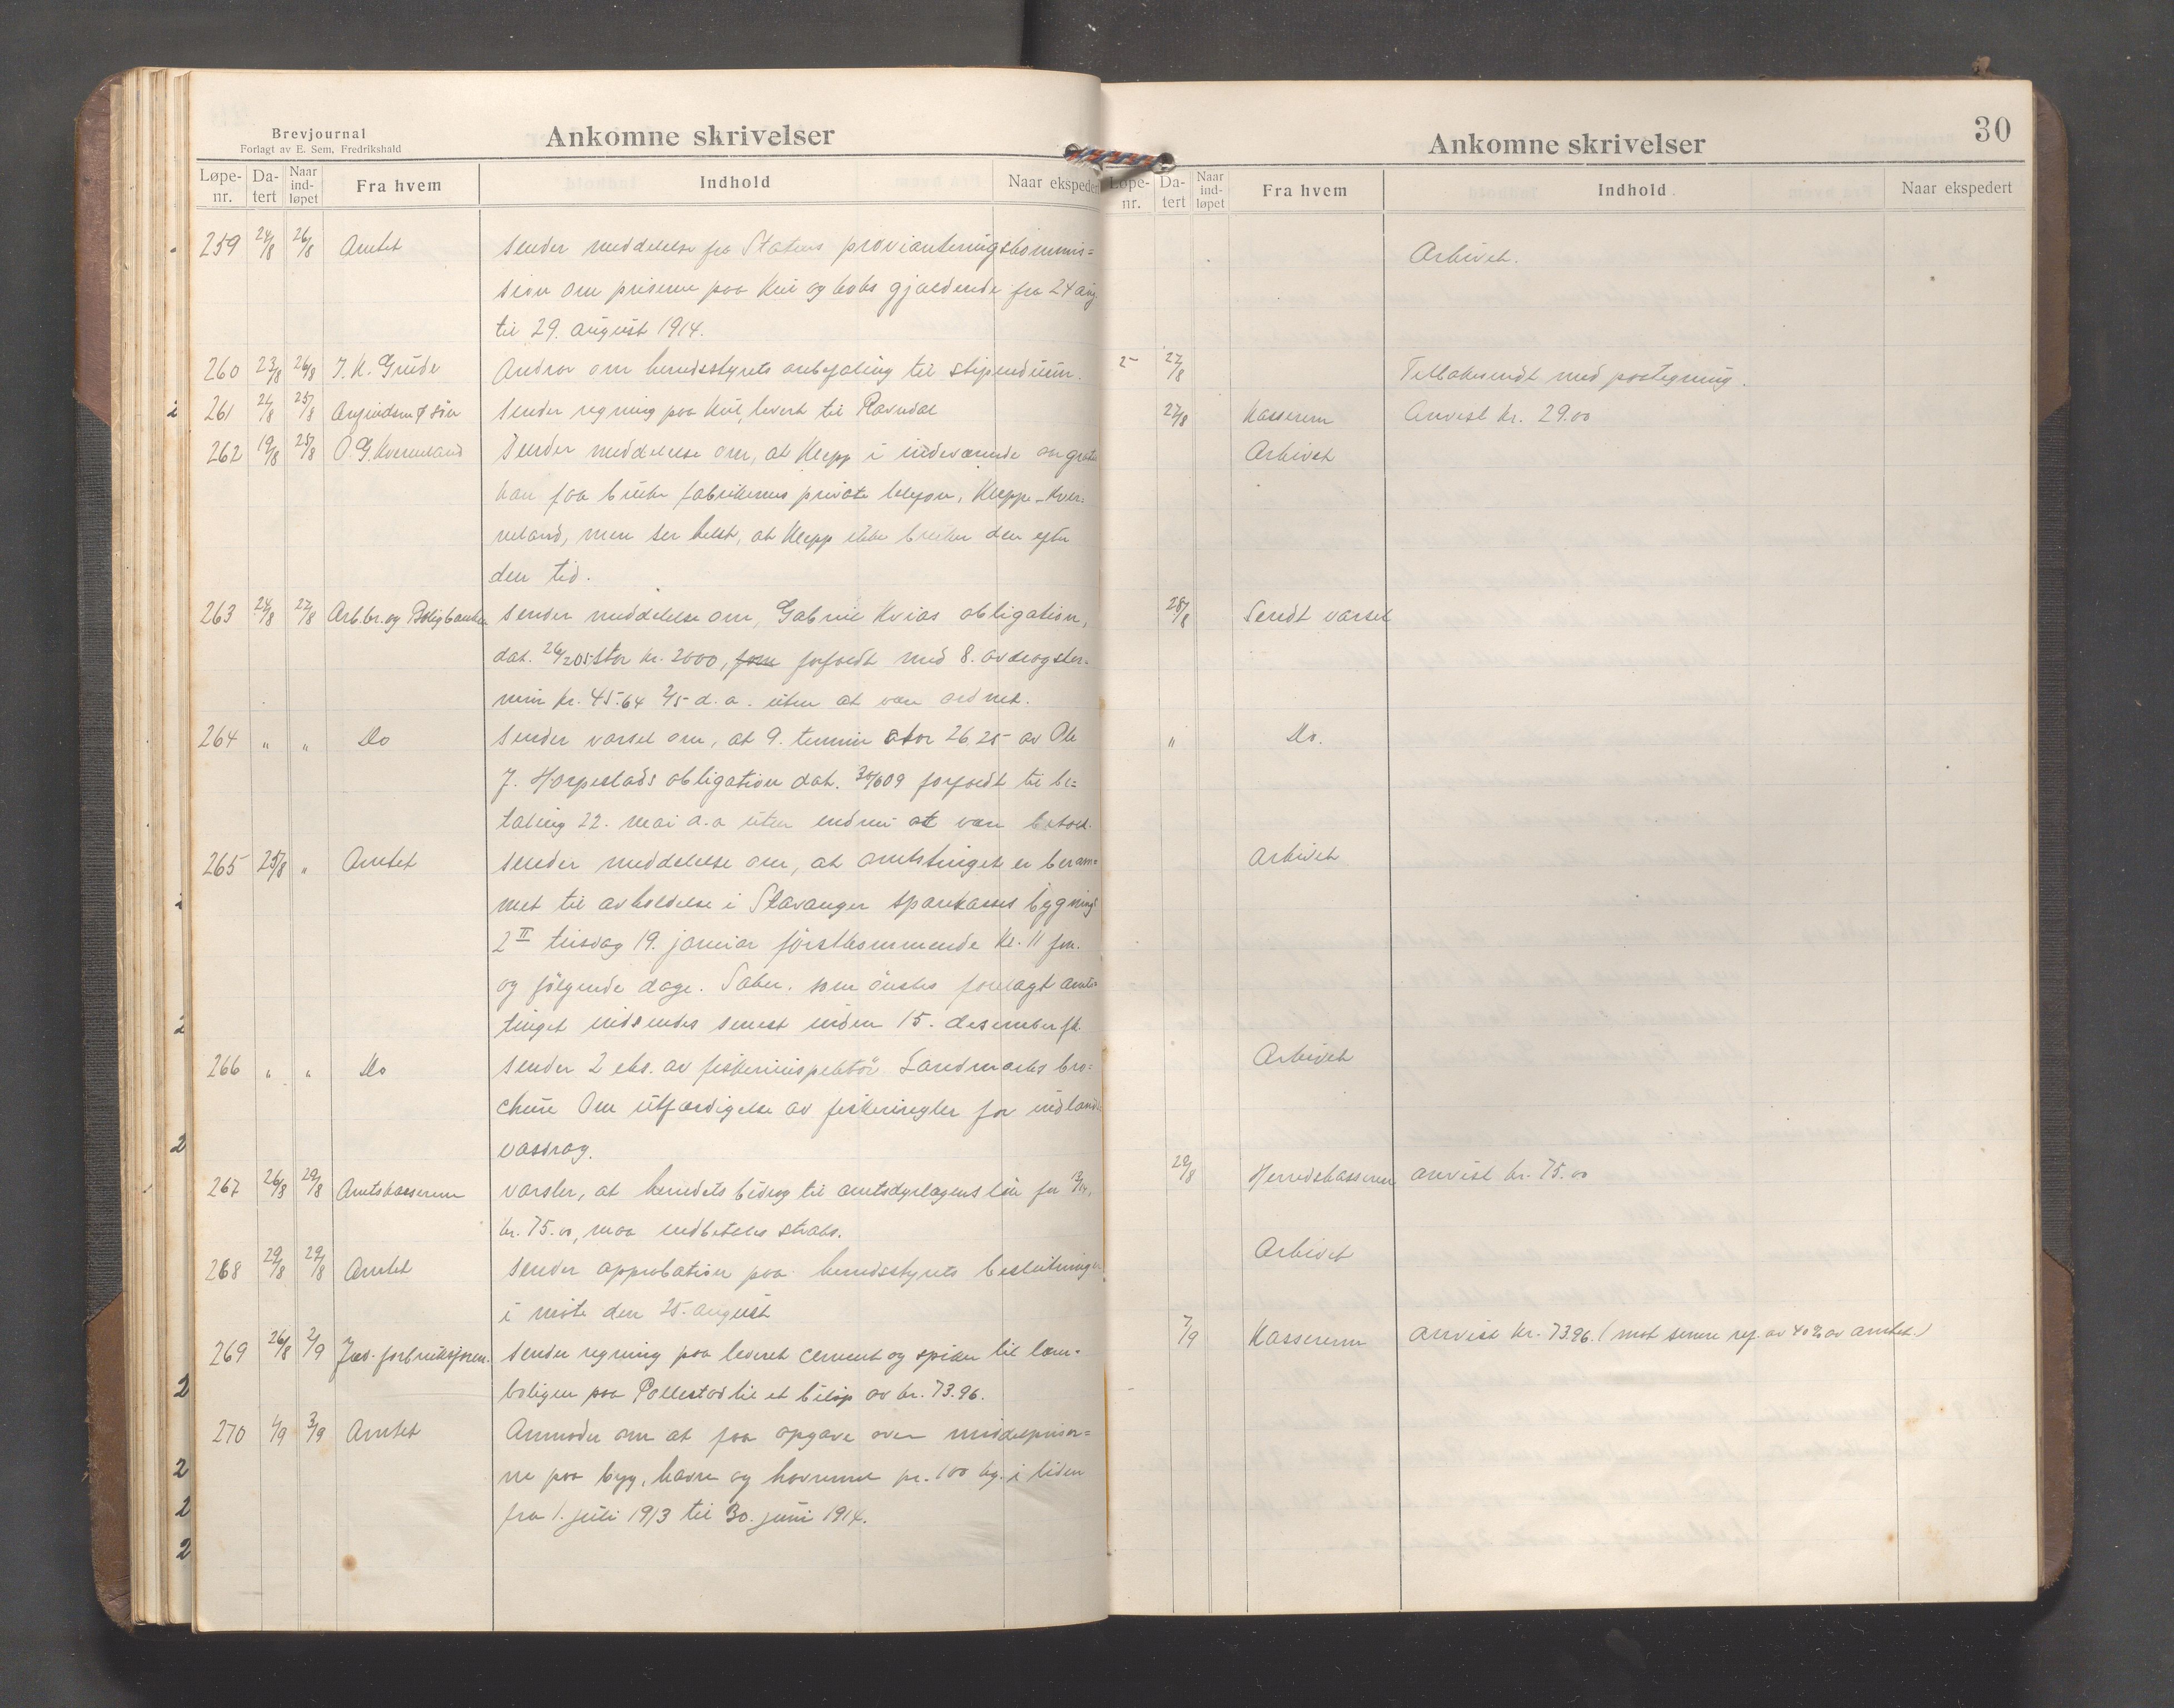 Brevjournal
Forlagt av E. Sem, Fredrikshald
Ankomne skrivelser
Løpe-nr. Da-tert Naar ind-løpet Fra hvem Indhold Naar ekspedert
259 24/8 26/8 Amtet Sender meddelelse fra Statens provianteringskommis=
sion om priserne paa kul og koks gjældende fra 24 aug.
til 29. august 1914.
260 23/8 26/8 J. K. Grude Andrar om herredsstyrets anbefaling til stipendium.
261 24/8 25/8 & søn Sender regning paa kul, levert til Ravndal
262 19/8 25/8 O. G. Kverneland Sender meddelelse om, at Klepp i indeværende aar gratis
kan faa bruke fabrikernes private telefon, Kleppe-Kver=
neland, men ser helst, at Klepp ikke bruker den efter
den tid.
263 24/8 27/8 Arb.br. og Boligbanken Sender meddelelse om, Gabriel Kvias obligation,
dat. 26/2 05 stor kr. 2000, som forfaldt med 8. avdragster-
min kr. 45.64 2/5 d. a. uten at være ordnet.
264 " " Do Sender varsel om, at 9. termin stor 26.25 av Ole
J. Horpestads obligation dat. 30/6 09 forfaldt til be=
taling 22. mai d.a uten endnu at være betalt.
265 25/8 " Amtet Sender meddelelse om, at amtstinget er beram=
met til avholdelse i Stavanger sparekasses bygning
2 II tirsdag 19. januar førstkommende kl. 11 fm.
og følgende dage. Saker, som ønskes forelagt amts=
tinget indsendes senest inden 15. desember fk.
266 " " Do Sender 2 eks. av fiskeriinspektør Landmarks bro=
chure Om utfærdigelse av fiskeriregler for indlands
vasdrag.
267 26/8 29/8 Amtskasseren varsler, at herredets bidrag til amtsdyrlægens løn for 13/14,
kr. 75.00, maa indbetales straks.
268 29/8 29/8 Amtet Sender approbation paa herredsstyrets beslutninger
i møte den 25. august
269 26/8 2/9 Jæd. forbruksforen. Sender regning paa leveret cement og spiker til læge-
boligen paa Pollestad til et beløp av kr. 73.96.
270 1/9 3/9 Amtet Anmoder om at faa opgave over middelpriser=
ne paa byg, havre og havremel pr. 100 kg. i tiden
fra 1. juli 1913 til 30. juni 1914.
Ankomne skrivelser
30
Løpe-nr. Da-tert Naar ind-løpet Fra hvem Indhold Naar ekspedert
Arkivet.
27/8 Tilbakesendt med paategning.
27/8 Kasseren Anvist kr. 29.00
Arkivet
28/8 Sendt varsel
" Do.
Arkivet
Arkivet
29/8 Herredskasseren anvist kr. 75.00
Arkivet
7/9 Kasseren anvist kr. 73.96. (mot senere ref. av 40% av amtet.)